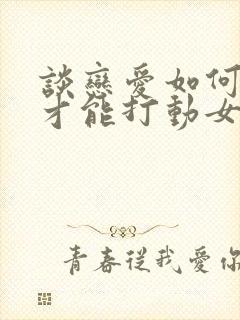 談戀愛如何
才能打動女
青春從我愛你